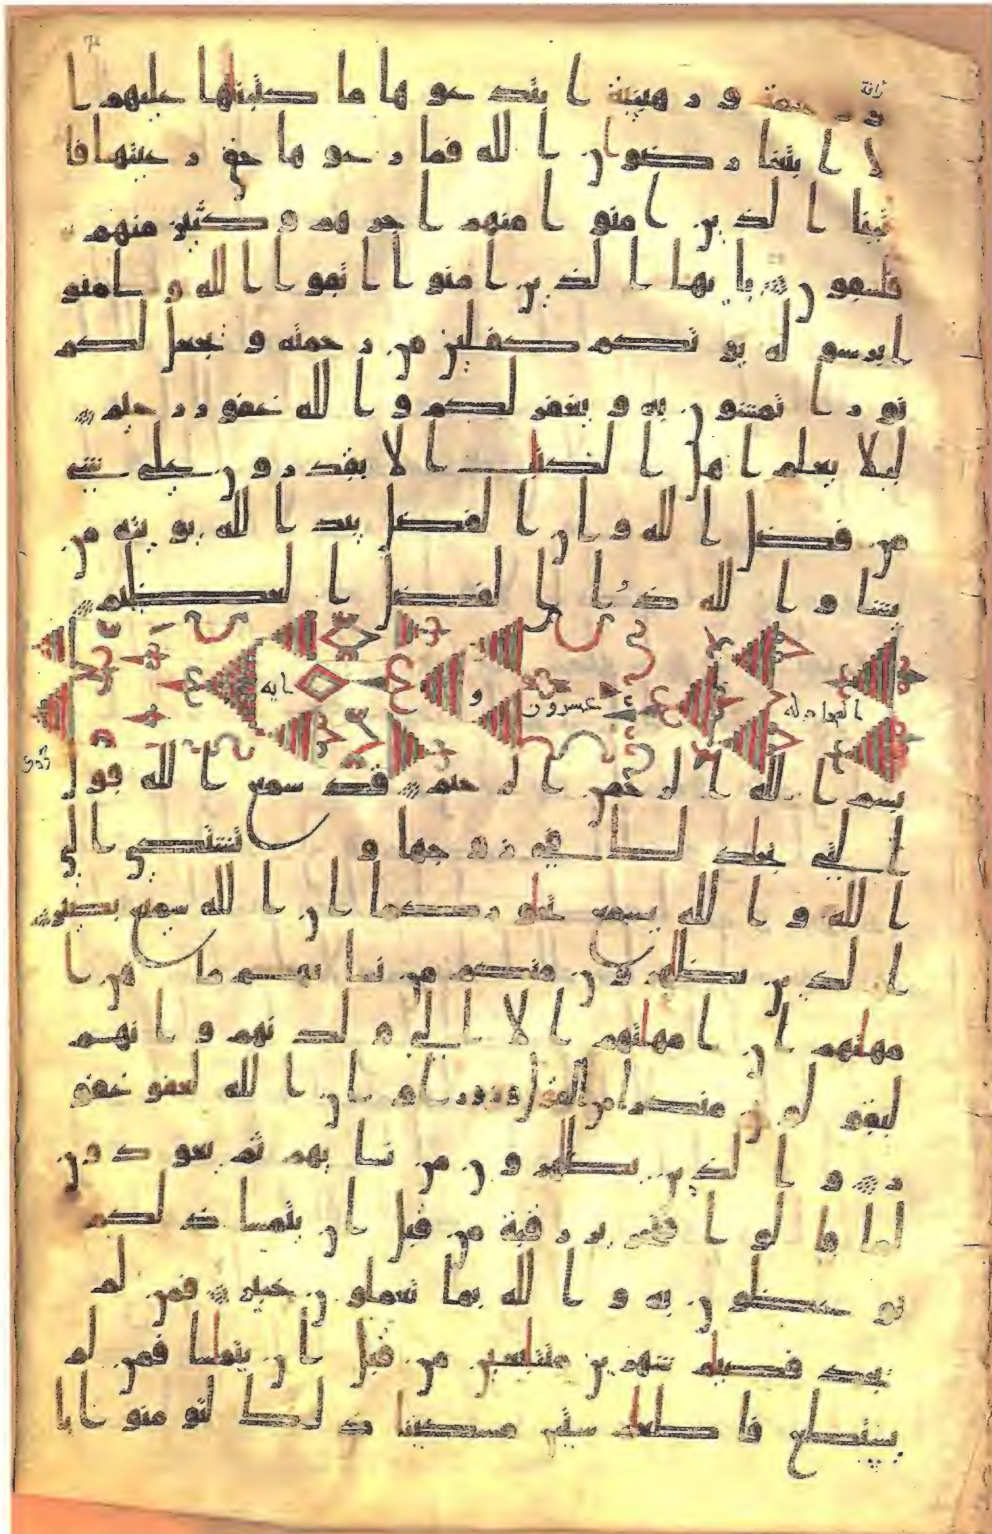 رافة
و رحمة و رهبنية ابتدعوها ما كتبنها عليهم ا
لا ابتغا رضوان الله فما رعوها حق رعيتها فا
تينا الذين امنوا منهم اجرهم و كثير منهم
فسقون يايها الذين امنوا اتقوا الله و امنو
ا برسوله يوتكم كفلين من رحمته و يجعل لكم
نورا تمشون به و يغفر لكم و الله غفور رحيم
ليلا يعلم اهل الكتب الا يقدرون على شي
من فضل الله و ان الفضل بيد الله يوتيه من
يشا و الله ذو ا الفضل العظيم
المجادله عشرون و ايه
بسم الله الرحمن الرحيم قد سمع الله قول
التي تجدلك في زوجها و تشتكي الى
الله و الله يسمع تحاوركما ان الله سميع بصير
الذين يظهرون منكم من نسايهم ما هن ا
مهاتهم ان امهاتهم الا الي ولدنهم و انهم
ليقولون منكرا من القول وزورا و ان الله لعفو غفو
ر و الذين يظهرون من نسايهم ثم يعودون
لما قالوا فتحرير رقبة من قبل ان يتماسا ذلكم
توعظون به و الله بما تعملون خبير فمن لم
يجد فصيام شهرين متتابعين من قبل ان يتماسا فمن لم
يستطع فاطعام ستين مسكينا ذلك لتومنوا با